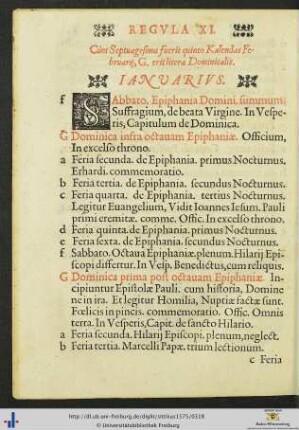 REGVLA XI.
Cùm Septuagesima fuerit quinto Kalendas Fe-
bruarij, G, erit litera Dominicalis.
IANVARIVS.
f SAbbato. Epiphania Domini. summum.
Suffragium, de beata Virgine. In Vespe-
ris, Capitulum de Dominica.
G Dominica infra octauam Epiphaniæ. Officium,
In excelso throno.
a Feria secunda. de Epiphania. primus Nocturnus.
Erhardi. commemoratio.
b Feria tertia. de Epiphania. secundus Nocturnus.
c Feria quarta. de Epiphania. tertius Nocturnus.
Legitur Euangelium, Vidit Ioannes Iesum. Pauli
primi eremitæ. comme. Offic. In excelso throno.
d Feria quinta. de Epiphania. primus Nocturnus.
e Feria sexta. de Epiphania. secundus Nocturnus.
f Sabbato. Octaua Epiphaniæ. plenum. Hilarij Epi-
scopi differtur. In Vesp. Benedictus, cum reliquis.
G Dominica prima post octauam Epiphaniæ. In-
cipiuntur Epistolæ Pauli. cum historia, Domine
ne in ira. Et legitur Homilia, Nuptiæ factæ sunt.
Fœlicis in pincis. commemoratio. Offic. Omnis
terra. In Vesperis, Capit. de sancto Hilario.
a Feria secunda. Hilarij Episcopi. plenum, neglect.
b Feria tertia. Marcelli Papæ. trium lectionum.
c Feria
http://dl.ub.uni-freiburg.de/diglit/stttlius1575/0318
© Universitätsbibliothek Freiburg
Baden-Württemberg